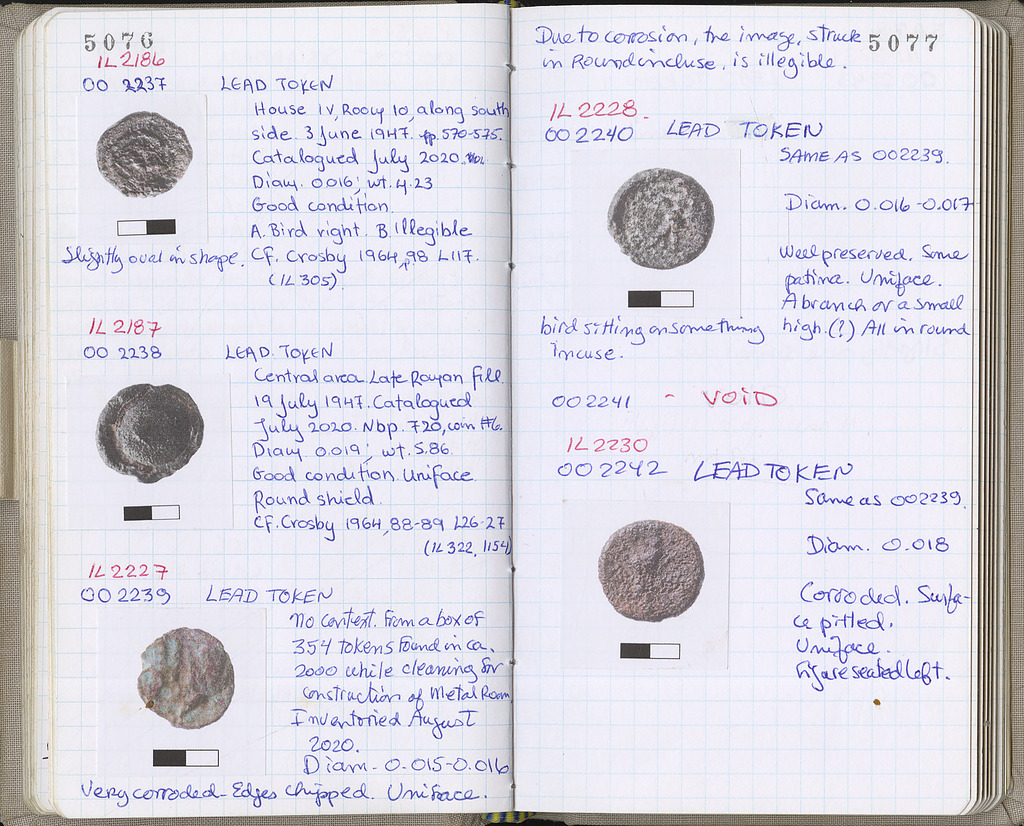 5076
IL 2186
OO 2237 LEAD TOKEN
House IV, Room 10, along south
side. 3 June 1947. pp. 570-575.
Catalogued July 2020.
Diam. 0.016; wt. 4.23
Good condition
A. Bird right. B. Illegible
Slightly oval in shape. Cf. Crosby 1964, p. 98 L117.
(IL 305)
IL 2187
OO 2238 LEAD TOKEN
Central area. Late Roman fill.
19 July 1947. Catalogued
July 2020. Nbp. 720, coin #6.
Diam 0.019; wt. 5.86.
Good condition. Uniface
Round shield.
Cf. Crosby 1964, 88-89 L26-27
(IL 322, 1154)
IL 2227
OO 2239 LEAD TOKEN
No context. From a box of
354 tokens found in ca.
2000 while cleaning for
construction of Metal Room
Inventoried August
2020.
Diam. 0.015-0.016
Very corroded. Edges chipped. Uniface.
5077
Due to corrosion, the image, struck
in Round incuse, is illegible.
IL 2228.
OO 2240 LEAD TOKEN
SAME AS OO2239.
Diam. 0.016-0.017
Well preserved. Some
patina. Uniface.
A branch or a small
bird sitting on something high. (?) All in round
incuse.
OO2241 - VOID
IL 2230
OO 2242 LEAD TOKEN
Same as OO2239.
Diam. 0.018
Corroded. Surfa-
ce pitted.
Uniface.
Figure seated left.